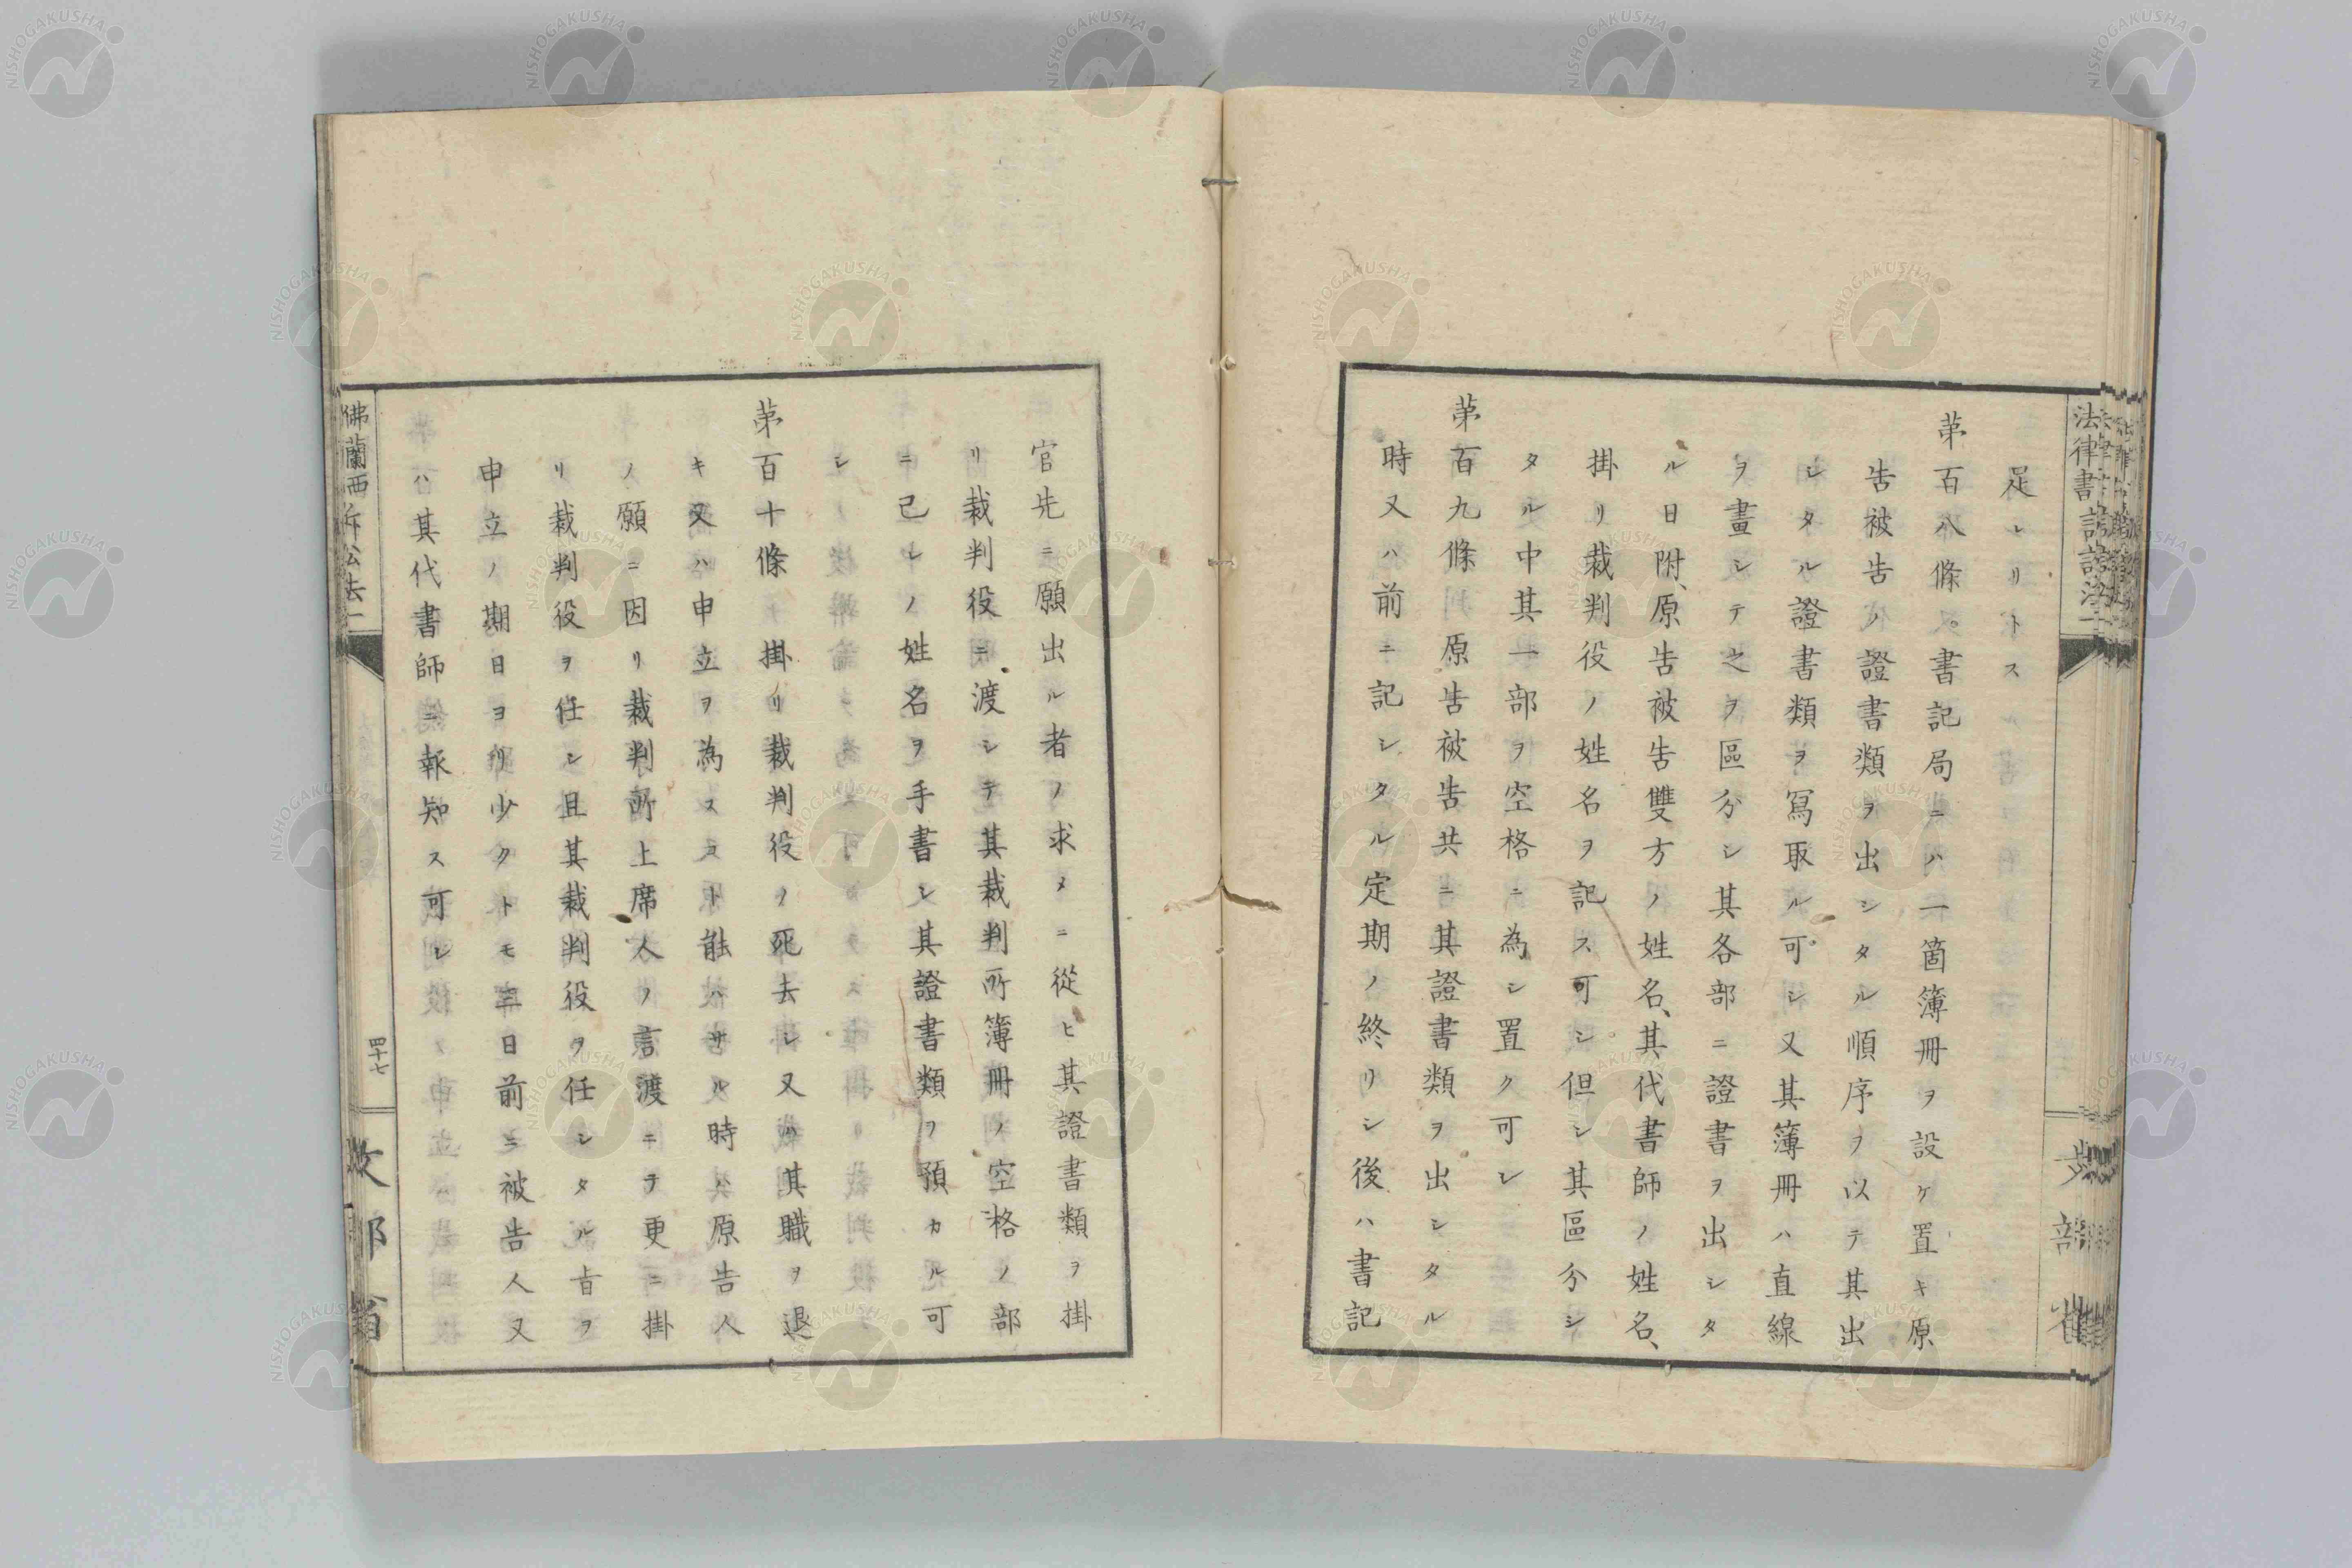 足レリトス
第百八條。書記局ニハ一箇簿冊ヲ設ケ置キ原
告被告ノ證書類ヲ出シタル順序ヲ以テ其出
シタル證書類ヲ寫取ル可シ又其簿冊ハ直線
ヲ畫シテ之ヲ區分シ其各部ニ證書ヲ出シタ
ル日附、原告被告雙方ノ姓名、其代書師ノ姓名、
掛リ裁判役ノ姓名ヲ記ス可シ但シ其區分シ
タル中其一部ヲ空格ニ為シ置ク可シ
第百九條 原告被告共ニ其證書類ヲ出シタル
時又ハ前ニ記シタル定期ノ終リシ後ハ書記
官先ニ願出ル者ノ求メニ從ヒ其證書類ヲ掛
リ裁判役ニ渡シテ其裁判所簿冊ノ空格ノ部
ニ己レノ姓名ヲ手書シ其證書類ヲ預カル可
シ
第百十條 掛リ裁判役ノ死去シ又ハ其職ヲ退
キ又ハ申立ヲ為スヿ能ハサル時ハ原告人
ノ願ニ因リ裁判所上席人ノ言渡ニテ更ニ掛
リ裁判役ヲ任シ且其裁判役ヲ任シタル旨ヲ
申立ノ期日ヨリ少クトモ三日前ニ被告人又
ハ其代書師ニ報知ス可シ
佛蘭西訴訟法一
四十七
文部省
NISHOGAKUSHA